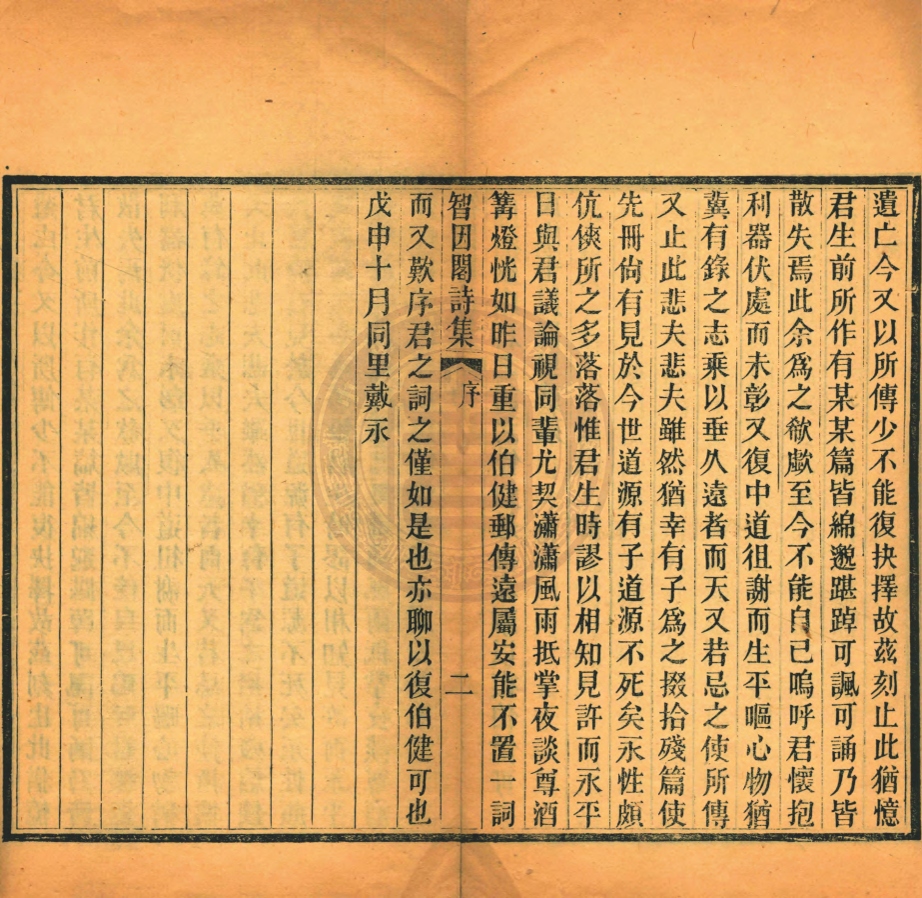 遺亡今又以所傳少不能復抉擇故茲刻止此猶憶
君生前所作有某某篇皆綿邈踸踔可諷可誦乃皆
散失焉此余爲之欷歔至今不能自已嗚呼君懷抱
利器伏處而未彰又復中道徂謝而生平嘔心物猶
冀有錄之志乘以垂久遠者而天又若忌之使所傳
又止此悲夫悲夫雖然猶幸有子爲之掇拾殘篇使
先冊尙有見於今世道源有子道源不死矣永性頗
伉俠所之多落落惟君生時謬以相知見許而永平
日與君議論視同輩尤契瀟瀟風雨抵掌夜談尊酒
篝燈恍如昨日重以伯健郵傳遠屬安能不置一詞
智因閣詩集 序 二
而又歎序君之詞之僅如是也亦聊以復伯健可也
戊申十月同里戴永